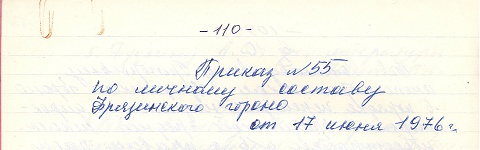 -110-
Приказ №55
по личному составу
Фрязинского гороно
от 17 июня 1976 г.